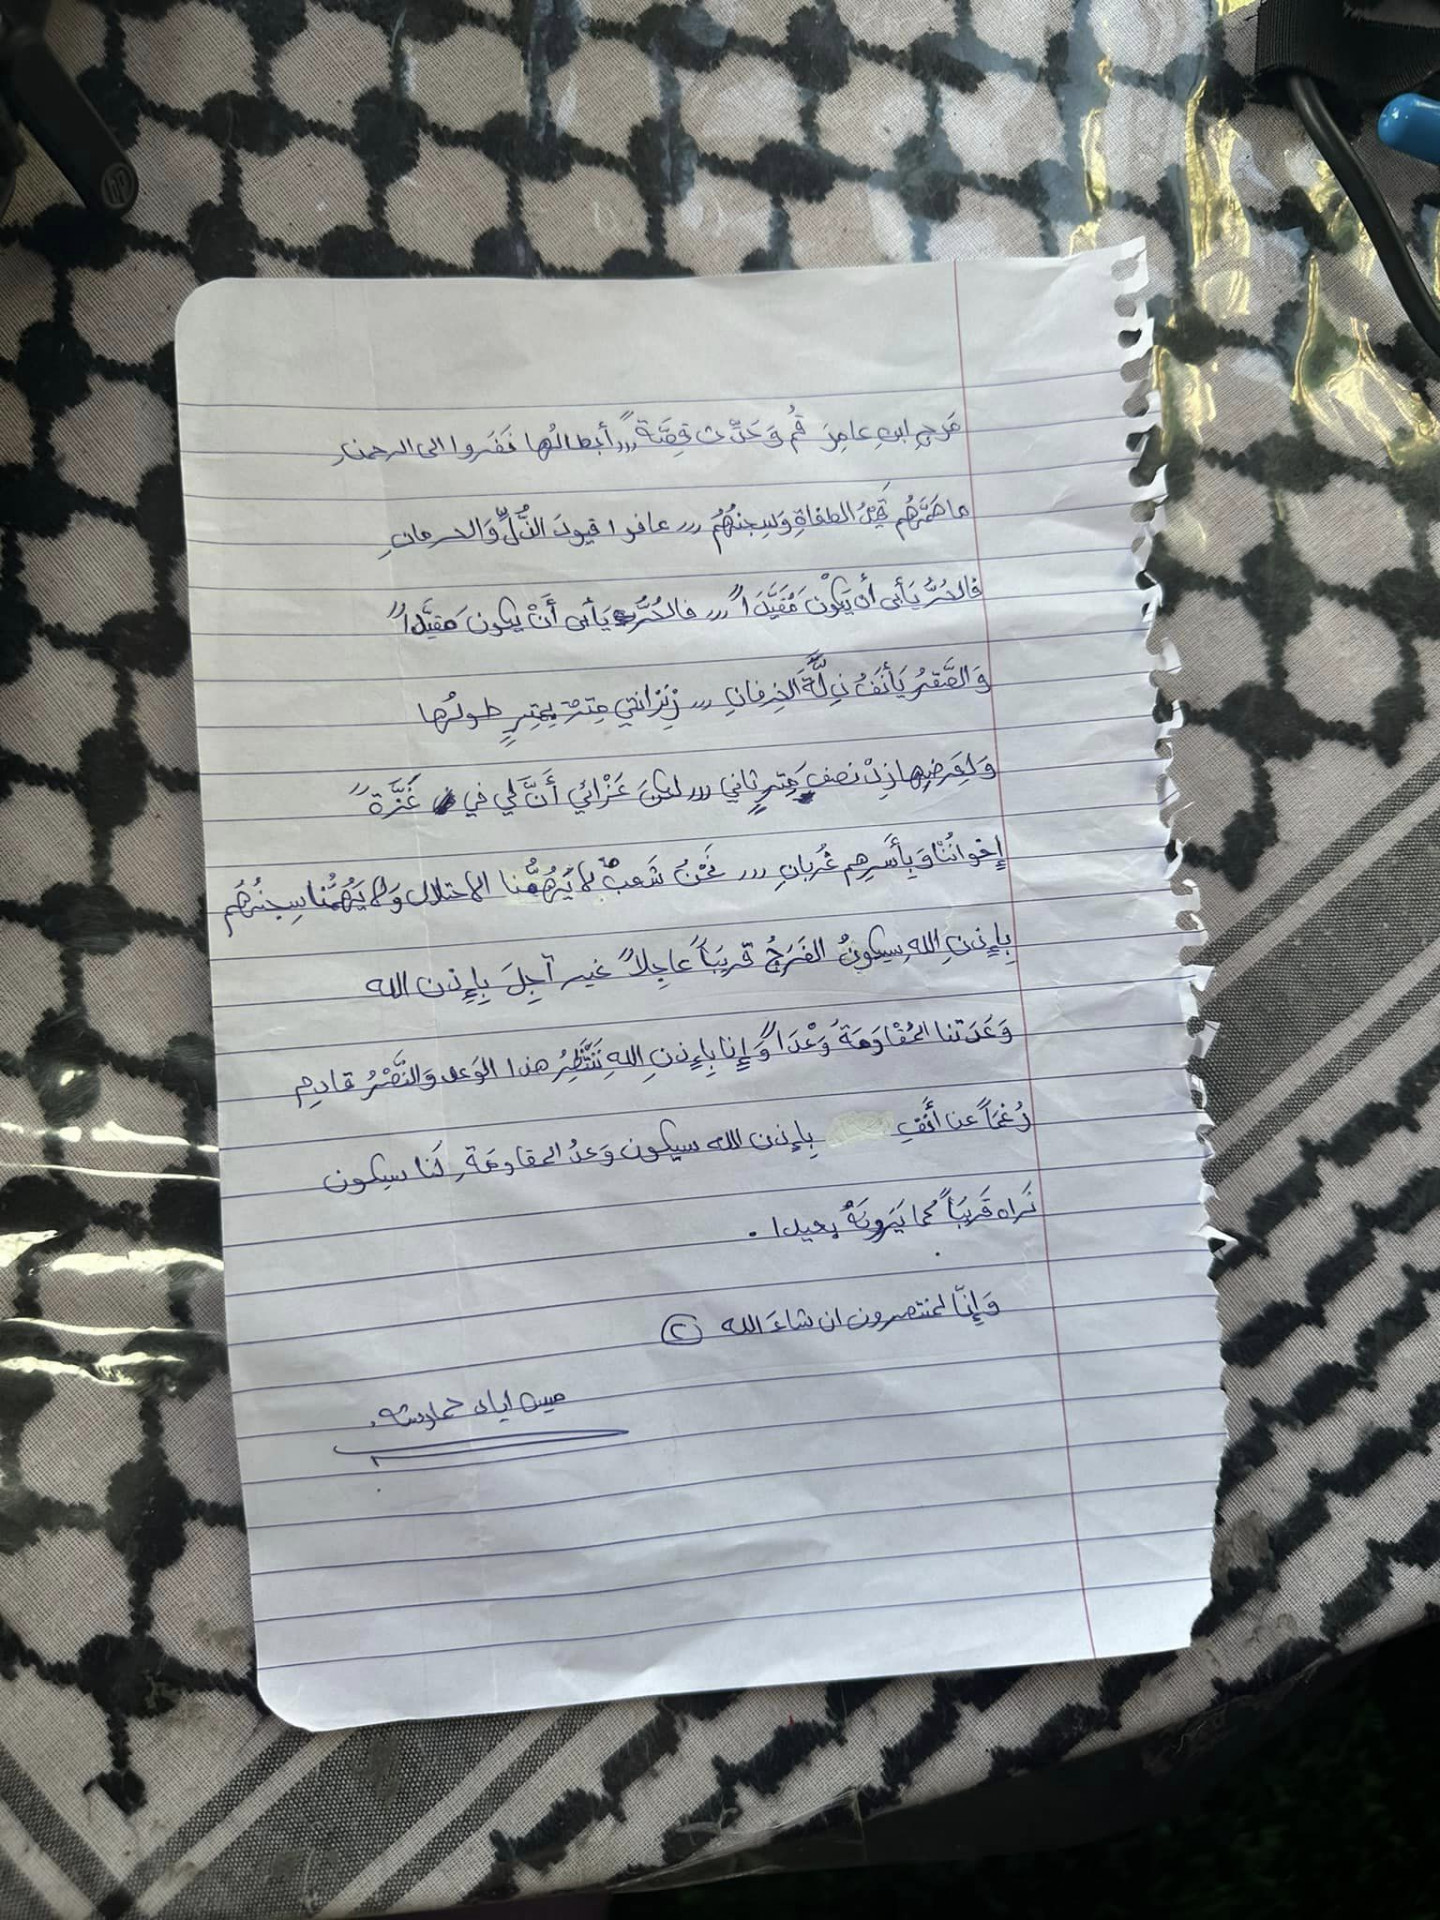 مَرجِ ابنِ عامِرَ قُم وَحَدِّث قِصَّةً ,,, أبطالُها نَفَروا الى الرحمن
ما هَمَّهُم قَيْدُ الطغاةِ وَسِجنُهُمُ ,,, عافوا قيودَ الذُّلِّ وَالحرمانِ
فالحُرُّ يَأبى أن يَكونَ مُقَيَّدَاً ,,, فالحُرُّ يَأبى أَنْ يكونَ مقيَّداً
وَالصَّقرُ يَأنَفُ ذِلَّةَ الخِرفانِ ,,, زِنزانتي مِترٌ بِمِترٍ طولُها
وَلِعَرضِها زِدْ نصفَ مِترٍ ثاني ,,, لكنَ عَزْائي أَنَّ لي في غَزَّةَ
إخوانُنا وَبِأَسرِهِم غُربانِ ,,, نَحْنُ شَعبٌ لا يَهُمُّنا الاحتلال وَلا يَهُمُّنا سِجنُهُم
بِإِذنِ اللهِ سيكونُ الفَرَجُ قَريبَاً عاجِلاً غير آجِلَ بِإِذن الله
وَعَدَتنا المُقْاوَمَة وَعْدَاً وَإِنا بِإِذنِ اللهِ نَنْتَظِرُ هذا الوَعد وَالنَّصْرُ قادِم
رُغمَاً عن أَنفِ بِإِذن الله سيكون وَعدُ المقاومَة لَنا سيكون
نَراه قَريبَاً كما يَرونَهُ بعيدا .
وَإِنّا لمنتصرون ان شاءَ الله
ميس اياد حمارشه.